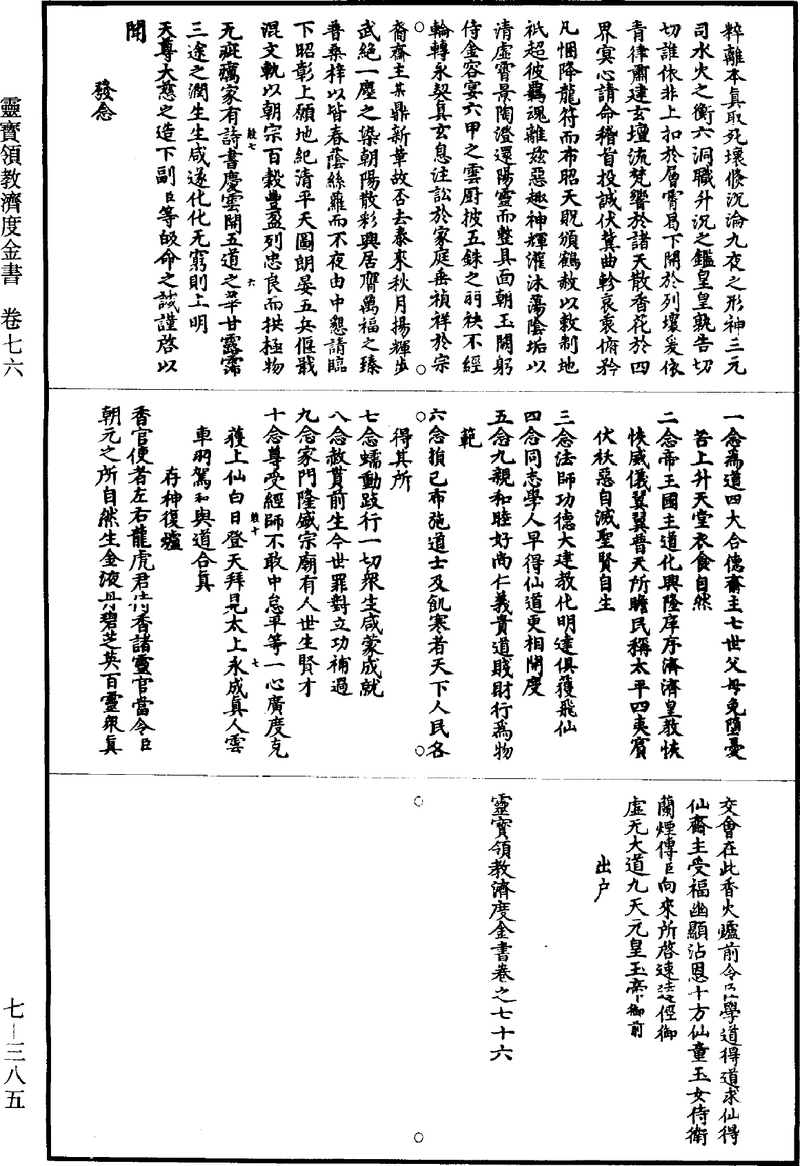 粹離本真取死壞倏沉淪九夜之形神三元
司水火之衡六洞職升沉之鑑皇皇孰告切
切誰依非上扣於層霄曷下開於列壤爰依
青律肅建玄壇流梵響於諸天散香花於四
界冥心請命稽首投誠伏冀曲軫哀衷俯矜
凡悃降龍符而布昭天貺頒鶴赦以敷制地
祇超彼羈魂離茲惡趣神輝濯沐蕩陰垢以
清虛霄景陶澄還陽靈而整具面朝玉闕躬
侍金容宴六甲之雲厨披五銖之羽袂不經
輪轉永契真玄息注訟於家庭垂禎祥於宗
裔齋主某鼎新革故否去泰來秋月揚輝步
武絕一塵之染朝陽散彩興居膺萬福之臻
普桑梓以皆春蔭絲蘿而不夜由中懇請臨
下昭彰上願地紀清平天圖朗晏五兵偃戢
混文軌以朝宗百穀豐盈列忠良而拱極物
无疵癘家有詩書慶雲開五道之華甘露霈
三途之潤生生咸遂化化无窮則上明
天尊大慈之造下副臣等皈命之誠謹啓以
聞
發念
一念為道四大合德齋主七世父母免墮憂
苦上升天堂衣食自然
二念帝王國主道化興隆庠序濟濟皇教恢
恢威儀翼翼普天所瞻民稱太平四夷賓
伏袄惡自滅聖賢自生
三念法師功德大建教化明達俱獲飛仙
四念同志學人早得仙道更相開度
五念九親和睦好尚仁義貴道賤財行為物
範
六念損己布施道士及飢寒者天下人民各
得其所
七念蠕動跂行一切眾生咸蒙成就
八念赦貰前生今世罪對立功補過
九念家門隆盛宗廟有人世生賢才
十念尊受經師不敢中怠平等一心廣度克
獲上仙白日登天拜見太上永成真人雲
車羽駕和與道合真
存神復爐
香官使者左右龍虎君侍香諸靈官當令臣
朝元之所自然生金液丹碧芝英百靈眾真
交會在此香火爐前令臣學道得道求仙得
仙齋主受福幽顯沾恩十方仙童玉女侍衛
蘭煙傳臣向來所啓速達徑御
虛无大道九天元皇玉帝御前
出户
靈寶領教濟度金書卷之七十六
靈寶領教濟度金書　卷七六
七—三八五